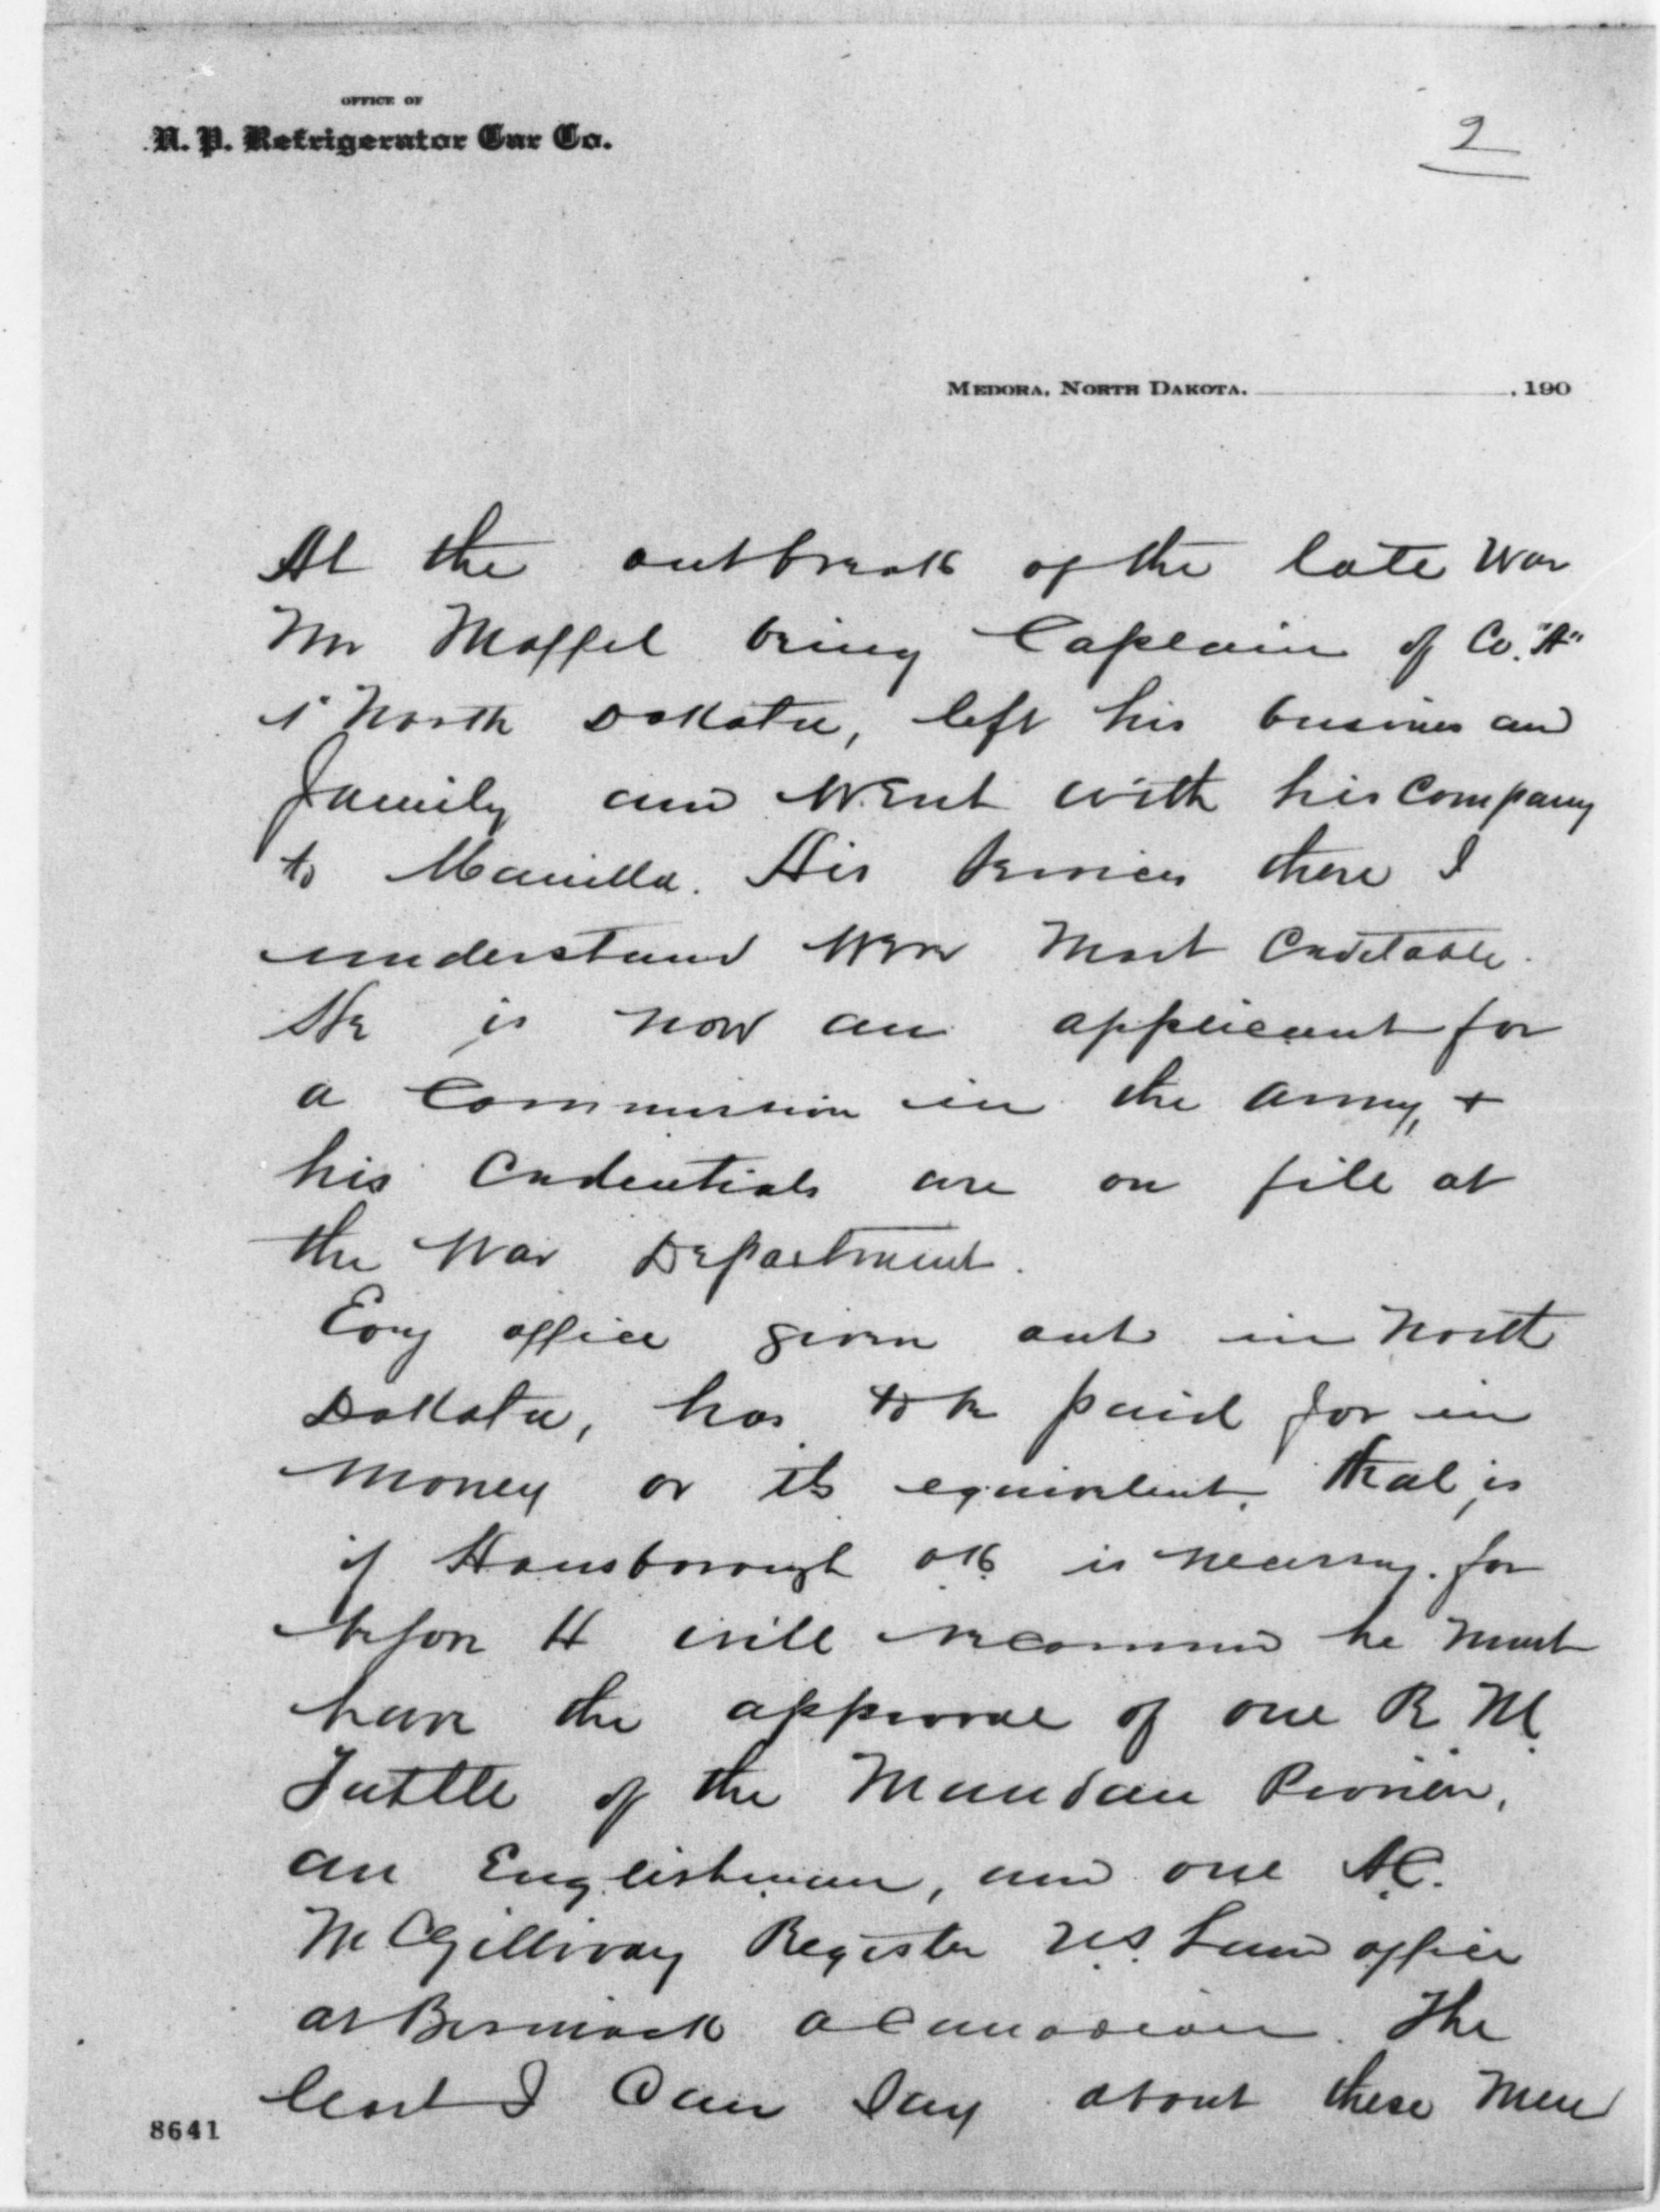 OFFICE OF
N. P. Refrigerator Car Co.
2
MEDORA, NORTH DAKOTA. , 190
At the outbreak of the late War
Mr Moffet being Captain of Co. "A"
1" North Dakota, left his business and
family and went with his Company
to Manilla. His services there I
understand were most Creditable.
He is now an applicant for
a Commission in the army, +
his Credentials are on file at
the War Department.
Every office given out in North
Dakota, has to be paid for in
money or its equivalent. that is
if Hansborough OK is necessary. for
before H will recommend he must
have the approval of one R M
Tuttle of the Mandan Pioneer,
an Englishman, and one A.C.
McGillivray Register U.S. Land office
at Bismarck a Canadian. The
least I Can say about these men
8641